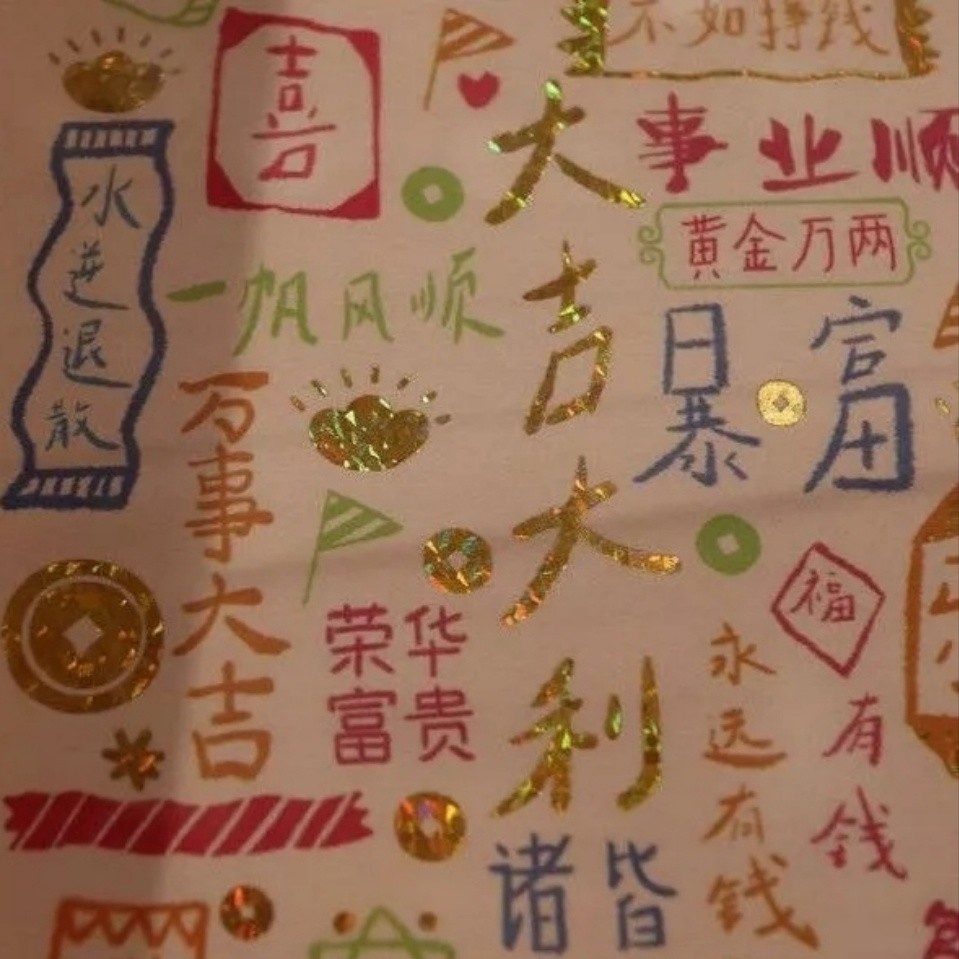 不如挣钱
喜
大吉大利
事业顺
水逆退散
黄金万两
一帆风顺
日暴
富
万事大吉
荣华
富贵
福
永远有钱
有钱
诸 皆